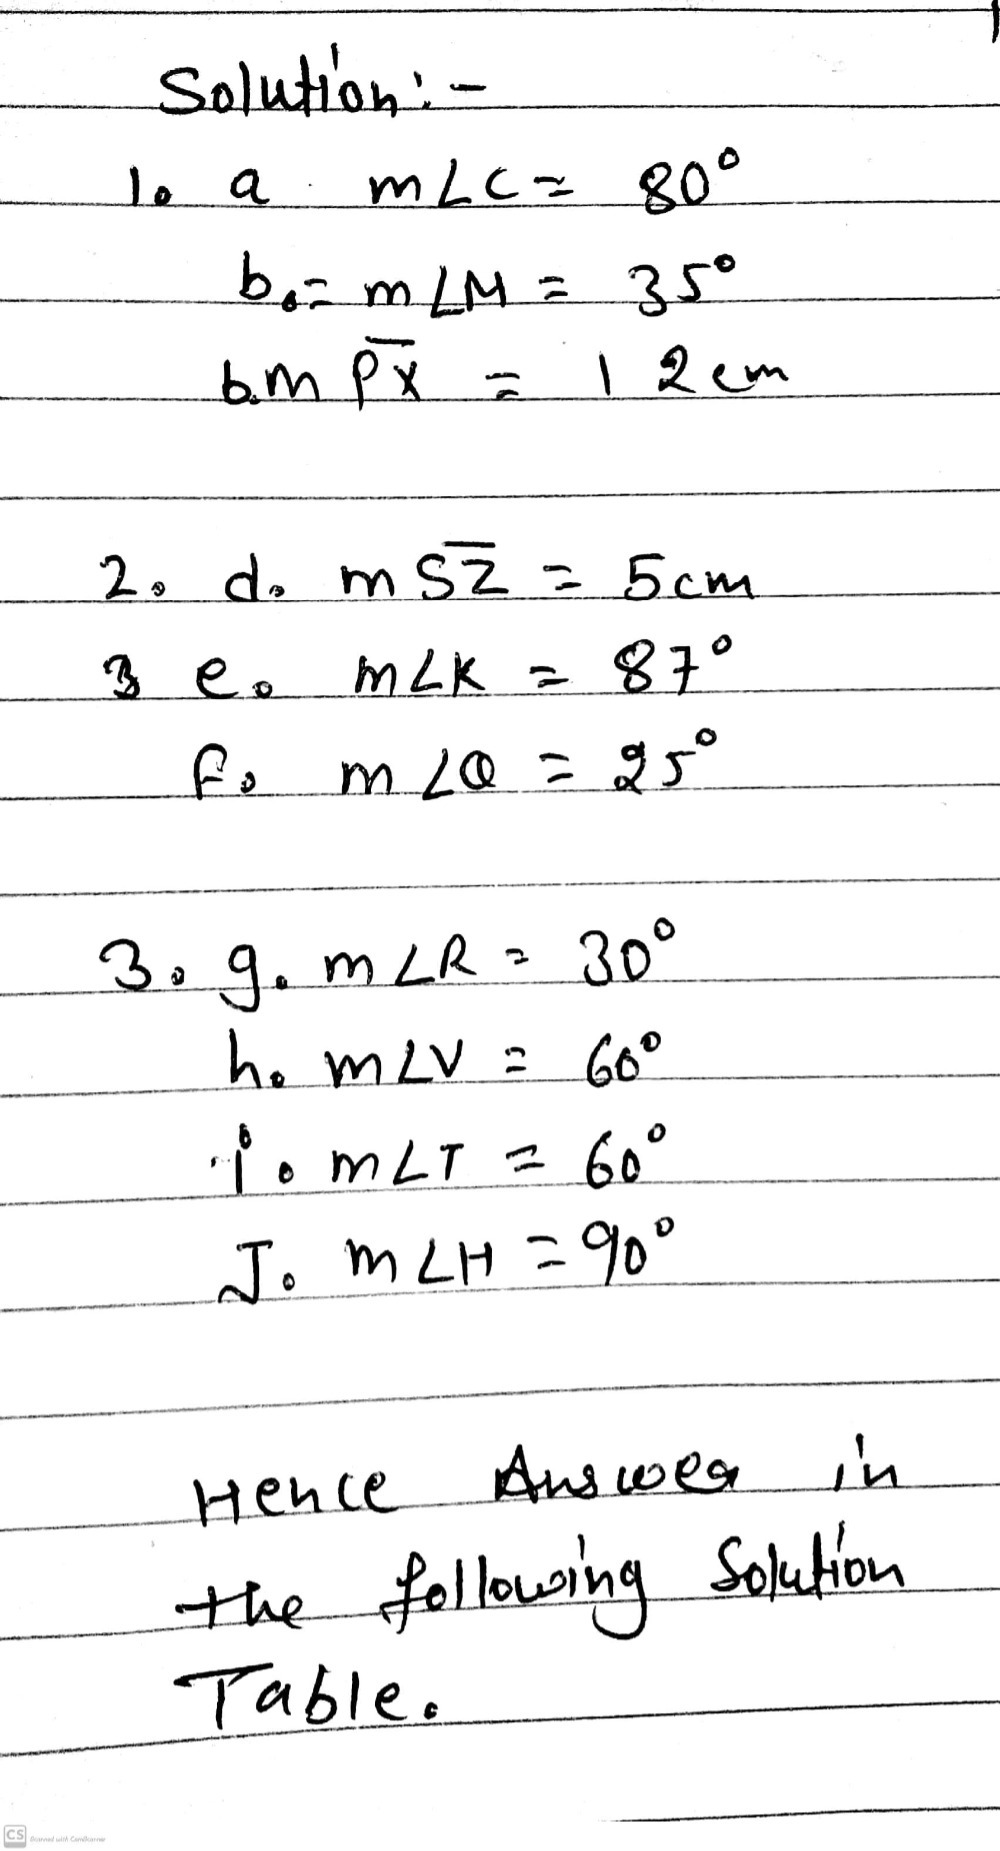 Solution:-
1. a. m∠C = 80°
b.= m∠M = 35°
b.m P̅X̅ = 12cm
2. d. m S̅Z̅ = 5cm
3 e. m∠K = 87°
f. m∠Q = 25°
3. g. m∠R = 30°
h. m∠V = 60°
i. m∠T = 60°
J. m∠H = 90°
Hence Answer in
the following Solution
Table.
CS Scanned with CamScanner